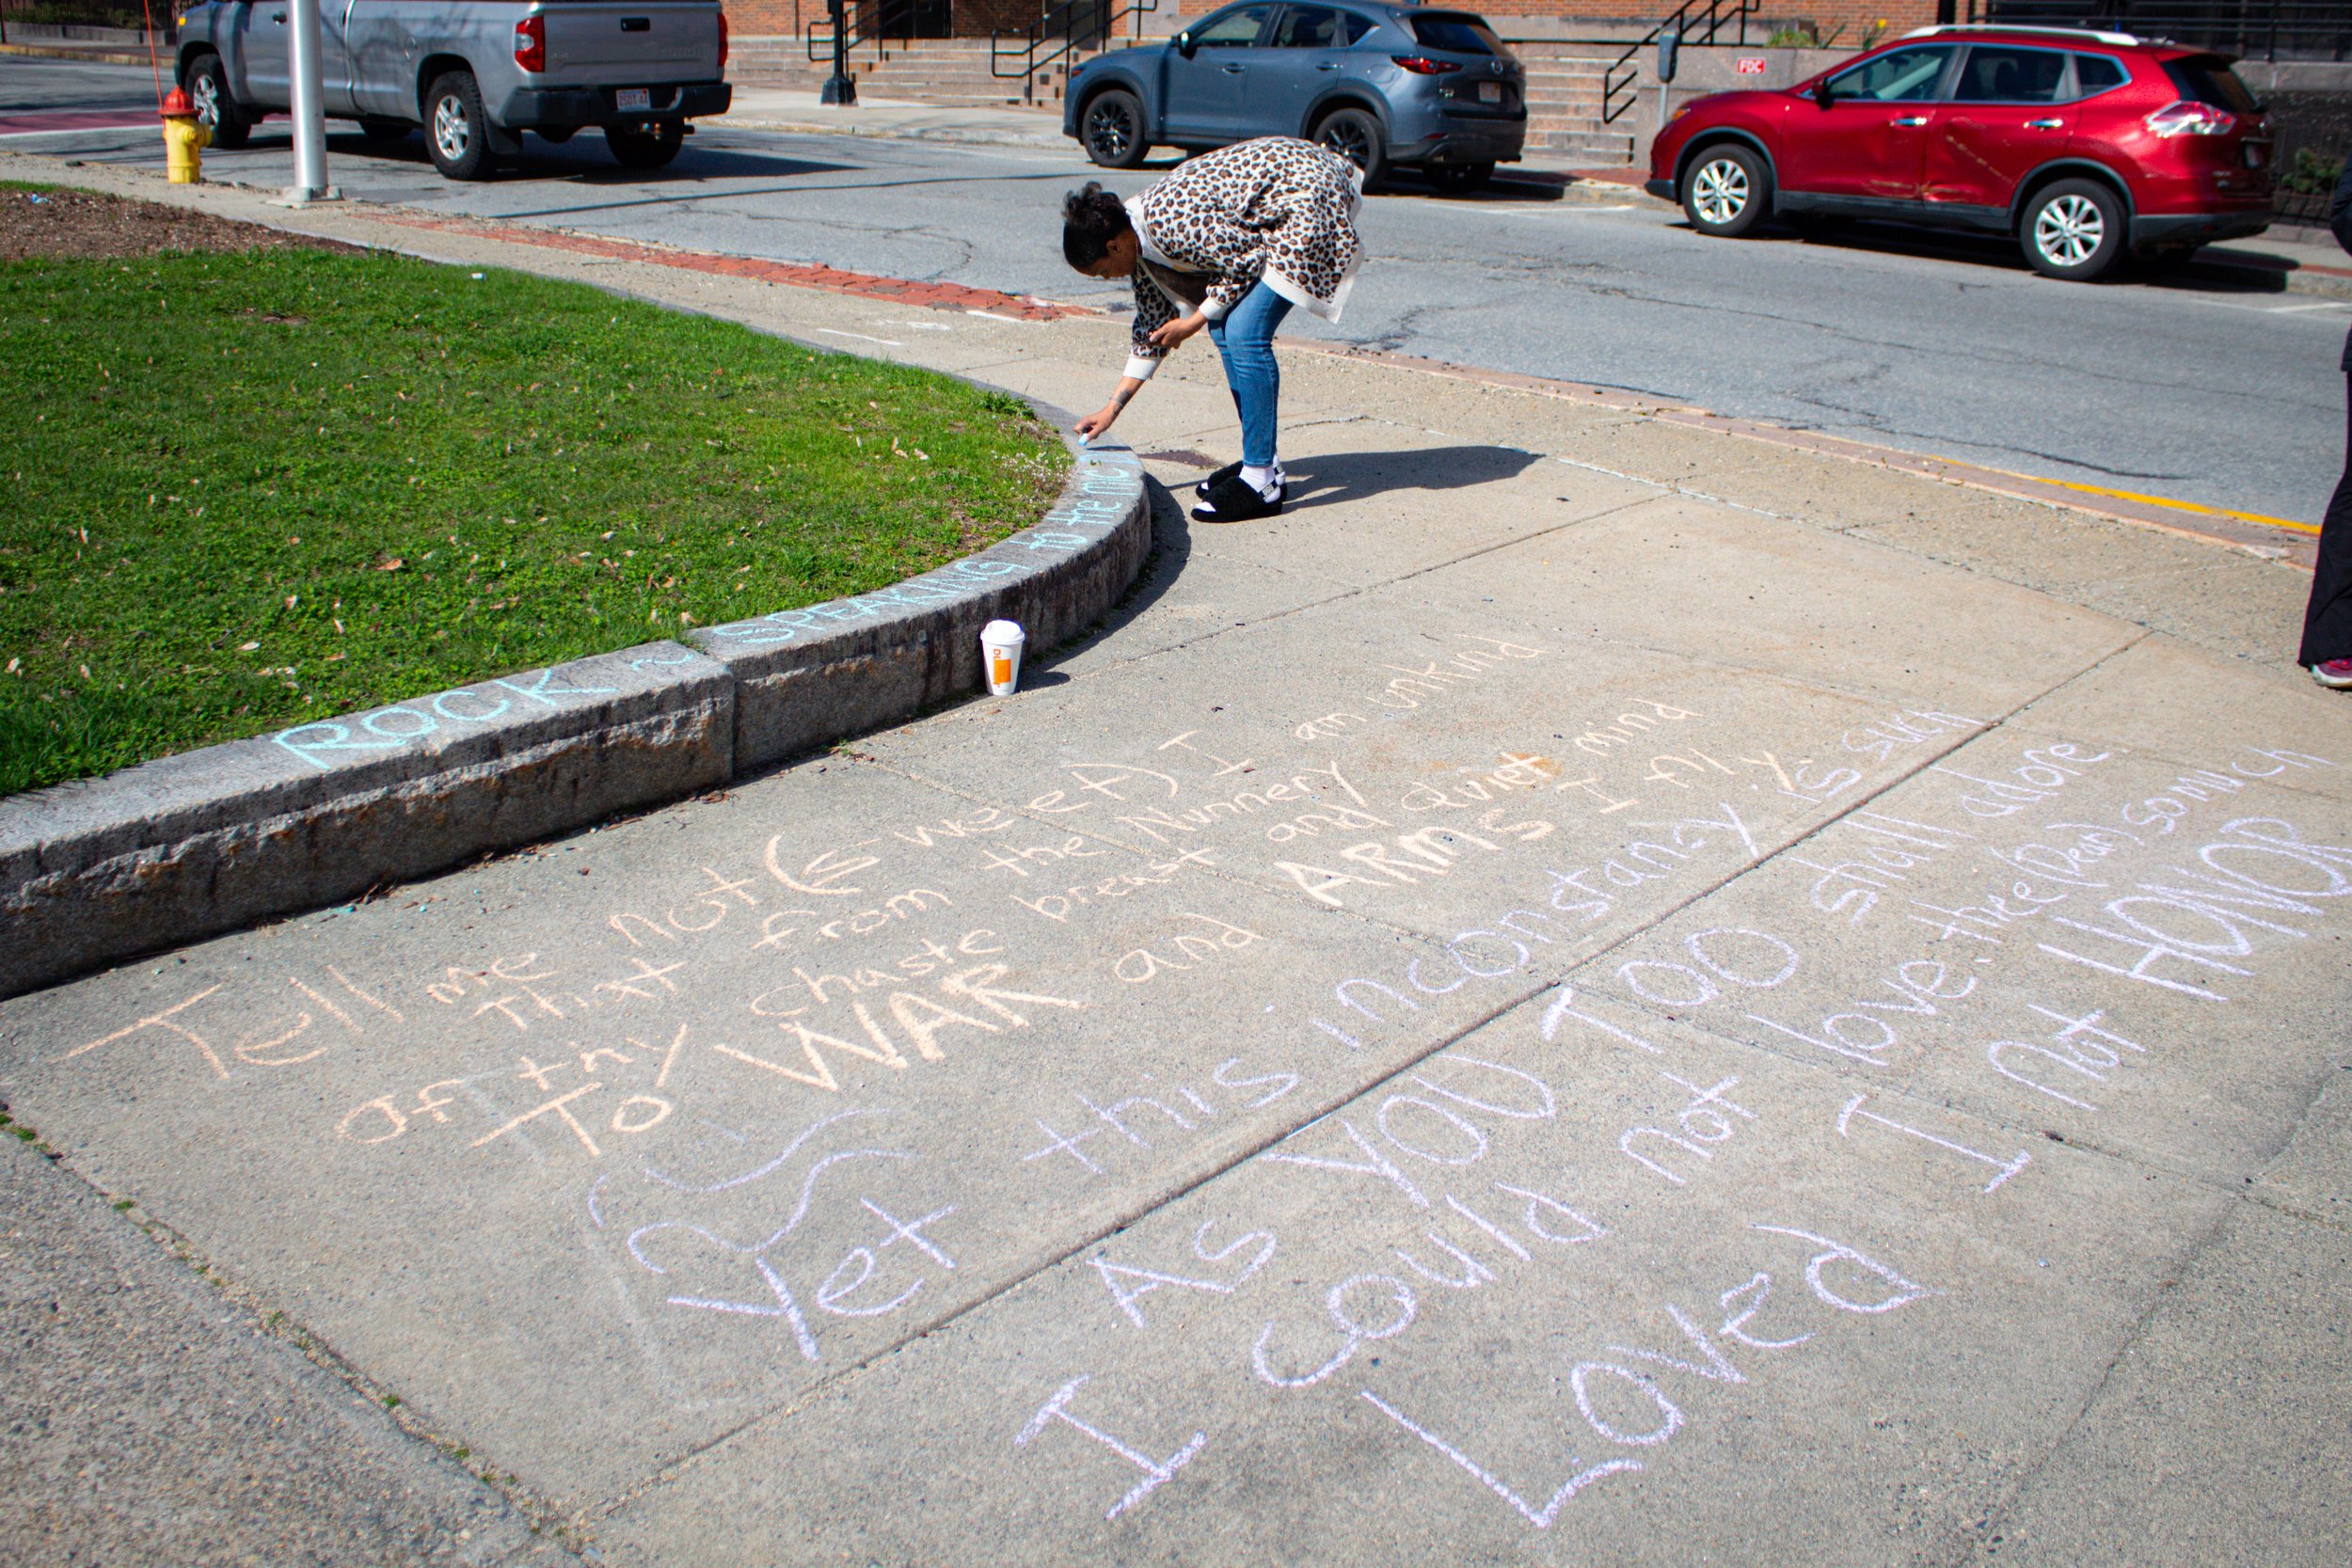 FDC
ROCK ~ SPEAKING to the
Tell me not (← weet) I am unkind
That from the Nunnery
of thy chaste breast and quiet mind
To WAR and ARMS I fly.
Yet this inconstancy is such
As YOU TOO shall adore
I could not love thee (Dear) so much
Loved I not HONOR